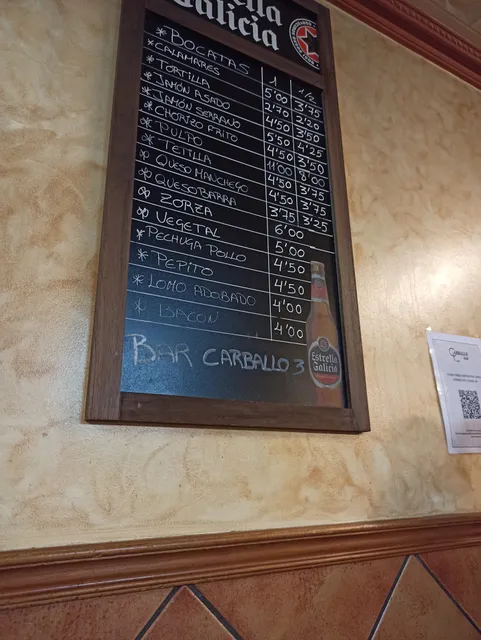 Estrella
Galicia
* BOCATAS 1 1/2
* CALAMARES 5'00 3'75
* TORTILLA 2'70 2'20
* JAMÓN ASADO 4'50 3'50
* JAMÓN SERRANO 5'50 4'25
* CHORIZO FRITO 4'50 3'50
* PULPO 11'00 8'00
* TETILLA 4'50 3'75
* QUESO MANCHEGO 4'50 3'75
* QUESO BARRA 3'75 3'25
* ZORZA 6'00
* VEGETAL 5'00
* PECHUGA POLLO 4'50
* PEPITO 4'50
* LOMO ADOBADO 4'00
* BACON 4'00
BAR CARBALLO 3
Estrella
Galicia
CARBALLO